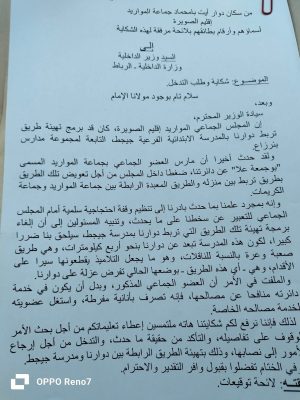 من سكان دوار أيت بامحماد جماعة المواريد
إقليم الصويرة
أسماؤهم وأرقام بطائقهم بلائحة مرفقة لهذه الشكاية
إلى
السيد وزير الداخلية
وزارة الداخلية - الرباط
الموضوع: شكاية وطلب التدخل.
سلام تام بوجود مولانا الإمام
وبعد،
سيادة الوزير المحترم،
إن المجلس الجماعي المواريد إقليم الصويرة، كان قد برمج تهيئة طريق
تربط دوارنا بالمدرسة الابتدائية الفرعية جيجط التابعة لمجموعة مدارس
بنزراع.
وقد حدث أخيرا أن مارس العضو الجماعي بجماعة المواريد المسمى
"بوجمعة علا" عن دائرتنا، ضغطا داخل المجلس من أجل تعويض تلك الطريق
بطريق تربط بين منزله والطريق المعبدة الرابطة بين جماعة المواريد وجماعة
الكريمات.
وإنه بمجرد علمنا بما حدث بادرنا إلى تنظيم وقفة احتجاجية سلمية أمام المجلس
الجماعي للتعبير عن سخطنا على ما يحدث، وتنبيه المسئولين إلى أن إلغاء
برمجة تهيئة تلك الطريق التي تربط دوارنا بمدرسة جيجط، سيلحق بنا ضررا
كبيرا، لكون هذه المدرسة تبعد عن دوارنا بنحو أربع كيلومترات، وهي طريق
صعبة وعرة بالنسبة للناقلات، وهو ما يجعل التلاميذ يقطعونها سيرا على
الأقدام، وهي - أي هذه الطريق - بوضعها الحالي تفرض عزلة على دوارنا.
والملفت في الأمر أن العضو الجماعي المذكور، وبدل أن يكون في خدمة
دائرته منافحا عن مصالحها، فإنه تصرف بأنانية مفرطة، واستغل عضويته
لخدمة مصالحه الخاصة.
لذلك فإننا نرفع لكم شكايتنا هاته ملتمسين إعطاء تعليماتكم من أجل بحث الأمر
لوقوف على تفاصيله، والتأكد من حقيقة ما حدث، والتدخل من أجل إرجاع
أمور إلى نصابها، وذلك بتهيئة الطريق الرابطة بين دوارنا ومدرسة جيجط.
في الختام تفضلوا بقبول وافر التقدير والاحترام.
لائحة توقيعات.
OPPO Reno7